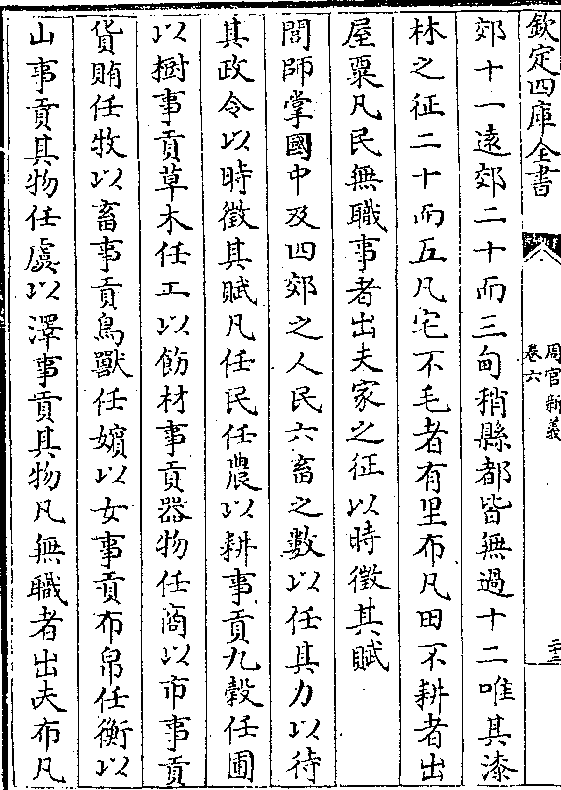 欽定四庫全書
周官新義
卷六
郊十一遠郊二十而三甸稍縣都皆無過十二唯其漆
林之征二十而五凡宅不毛者有里布凡田不耕者出
屋粟凡民無職事者出夫家之征以時徵其賦
閭師掌國中及四郊之人民六畜之數以任其力以待
其政令以時徵其賦凡任民任農以耕事貢九穀任圃
以樹事貢草木任工以飭材事貢器物任商以市事貢
貨賄任牧以畜事貢鳥獸任嬪以女事貢布帛任衡以
山事貢其物任虞以澤事貢其物凡無職者出夫布凡